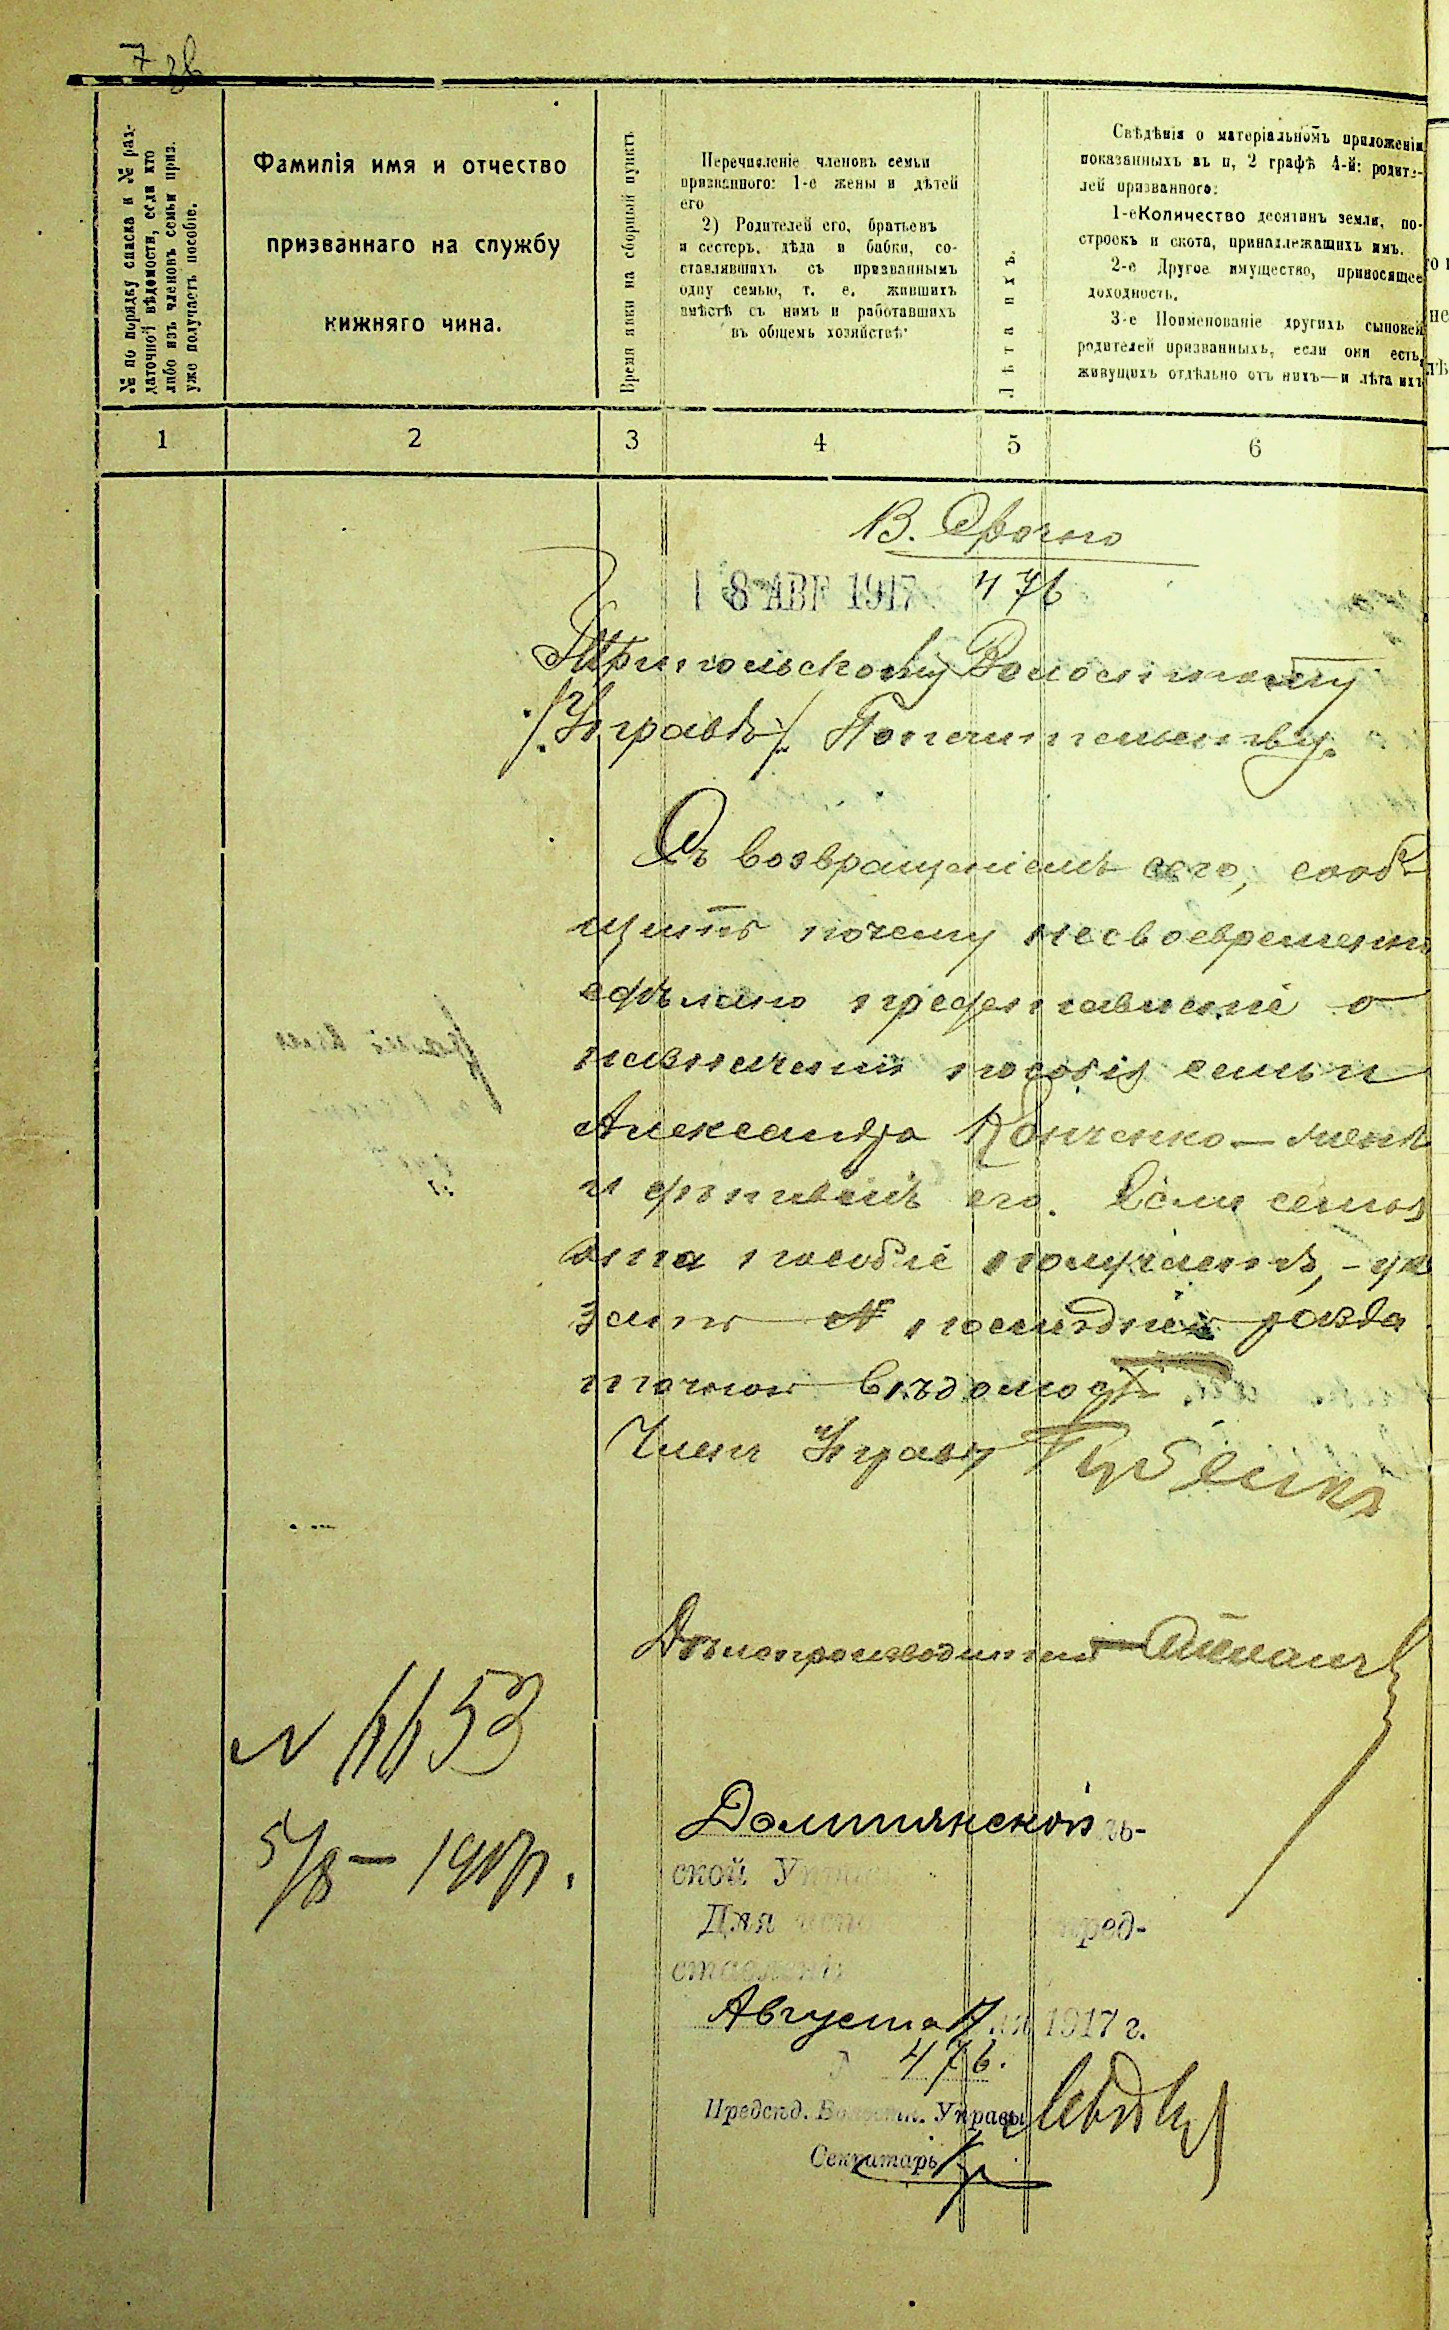 7 зв
№ по порядку списка и № раз-
даточной вѣдомости, если кто
либо изъ членовъ семьи приз.
уже получаетъ пособіе.
Фамилія имя и отчество
призваннаго на службу
нижняго чина.
Время явки на сборный пунктъ
Перечисленіе членовъ семьи
призваннаго: 1-е жены и дѣтей
его
2) Родителей его, братьевъ
и сестеръ, дѣда и бабки, со-
ставлявшихъ съ призваннымъ
одну семью, т. е. жившихъ
вмѣстѣ съ нимъ и работавшихъ
въ общемъ хозяйствѣ
Лѣта ихъ.
Свѣдѣнія о матеріальномъ приложенія
показанныхъ въ п, 2 графѣ 4-й: родите-
лей призваннаго:
1-е Количество десятинъ земли, по-
строекъ и скота, принадлежащихъ имъ.
2-е Другое имущество, приносящее
доходность.
3-е Поименованіе другихъ сыновей
родителей призванныхъ, если они есть,
живущихъ отдѣльно отъ нихъ—и лѣта ихъ
1 2 3 4 5 6
В. Срочно
18 АВГ 1917 476
Трипольскому Волостному
/.Управѣ/. Попечительству.
Съ возвращеніемъ сего, сооб-
щить почему несвоевременно
сдѣлано представленіе о
назначеніи пособія семьи
Александра Конченко — женѣ
и дѣтямъ его. Если семья
эта пособіе получаетъ, - ука
зать № послѣдней разда
точной вѣдомости.
Членъ Управы
Дѣлопроизводитель
N 6653
5/8 — 1917 г.
ль-
ской
Для пред-
ставленія
Августа 17 дня 1917 г.
476.
Предсѣд. Волостн. Управы
Секретарь